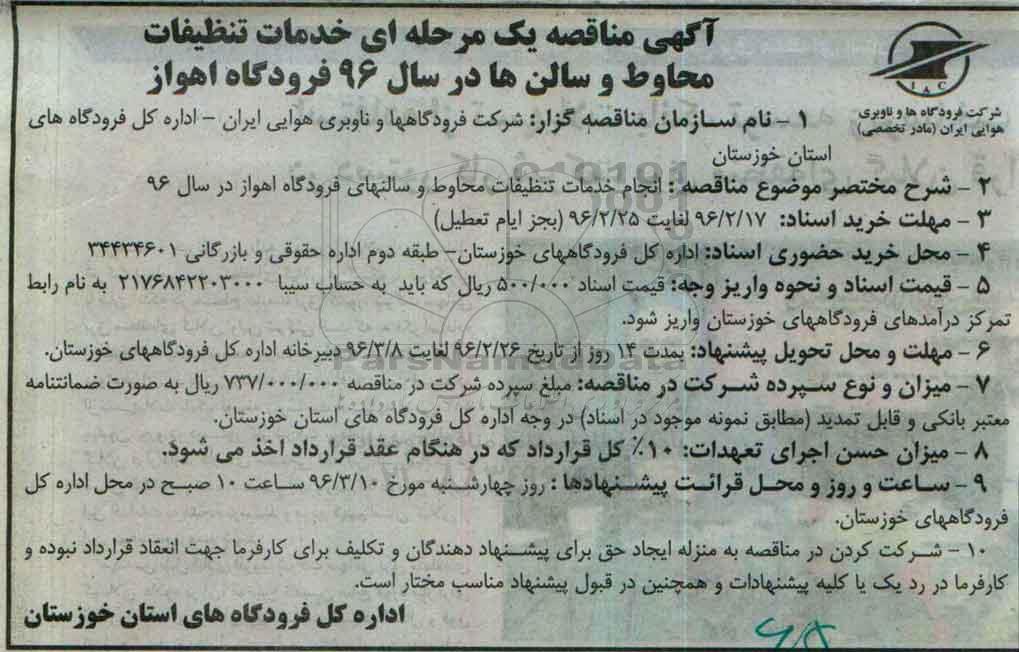 آگهی مناقصه یک مرحله ای خدمات تنظیفات
محاوط و سالن ها در سال ۹۶ فرودگاه اهواز
IAC
شرکت فرودگاه ها و ناوبری
هوایی ایران (مادر تخصصی)
۱ - نام سازمان مناقصه گزار: شرکت فرودگاهها و ناوبری هوایی ایران - اداره کل فرودگاه های
استان خوزستان
۲ - شرح مختصر موضوع مناقصه : انجام خدمات تنظیفات محاوط و سالنهای فرودگاه اهواز در سال ۹۶
۳ - مهلت خرید اسناد: ۹۶/۲/۱۷ لغایت ۹۶/۲/۲۵ (بجز ایام تعطیل)
۴ - محل خرید حضوری اسناد: اداره کل فرودگاههای خوزستان- طبقه دوم اداره حقوقی و بازرگانی ۳۴۴۳۴۶۰۱
۵ - قیمت اسناد و نحوه واریز وجه: قیمت اسناد ۵۰۰/۰۰۰ ریال که باید به حساب سیبا ۲۱۷۶۸۴۲۲۰۳۰۰۰ به نام رابط
تمرکز درآمدهای فرودگاههای خوزستان واریز شود.
۶ - مهلت و محل تحویل پیشنهاد: بمدت ۱۴ روز از تاریخ ۹۶/۲/۲۶ لغایت ۹۶/۳/۸ دبیرخانه اداره کل فرودگاههای خوزستان.
۷ - میزان و نوع سپرده شرکت در مناقصه: مبلغ سپرده شرکت در مناقصه ۷۳۷/۰۰۰/۰۰۰ ریال به صورت ضمانتنامه
معتبر بانکی و قابل تمدید (مطابق نمونه موجود در اسناد) در وجه اداره کل فرودگاه های استان خوزستان.
۸ - میزان حسن اجرای تعهدات: ۱۰٪ کل قرارداد که در هنگام عقد قرارداد اخذ می شود.
۹ - ساعت و روز و محل قرائت پیشنهادها : روز چهارشنبه مورخ ۹۶/۳/۱۰ ساعت ۱۰ صبح در محل اداره کل
فرودگاههای خوزستان.
۱۰ - شرکت کردن در مناقصه به منزله ایجاد حق برای پیشنهاد دهندگان و تکلیف برای کارفرما جهت انعقاد قرارداد نبوده و
کارفرما در رد یک یا کلیه پیشنهادات و همچنین در قبول پیشنهاد مناسب مختار است.
اداره کل فرودگاه های استان خوزستان
ParsNamadData